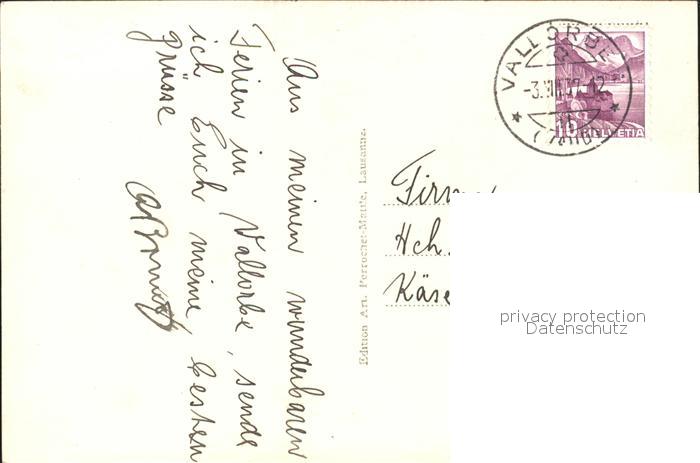 Aus meinen wunderbaren
Ferien in Vallorbe, sende
ich Euch meine besten
grüsse
Edition Art. Perrochet-Matile, Lausanne.
VALLORBE
10 HELVETIA
Hch.
Käse
privacy protection
Datenschutz